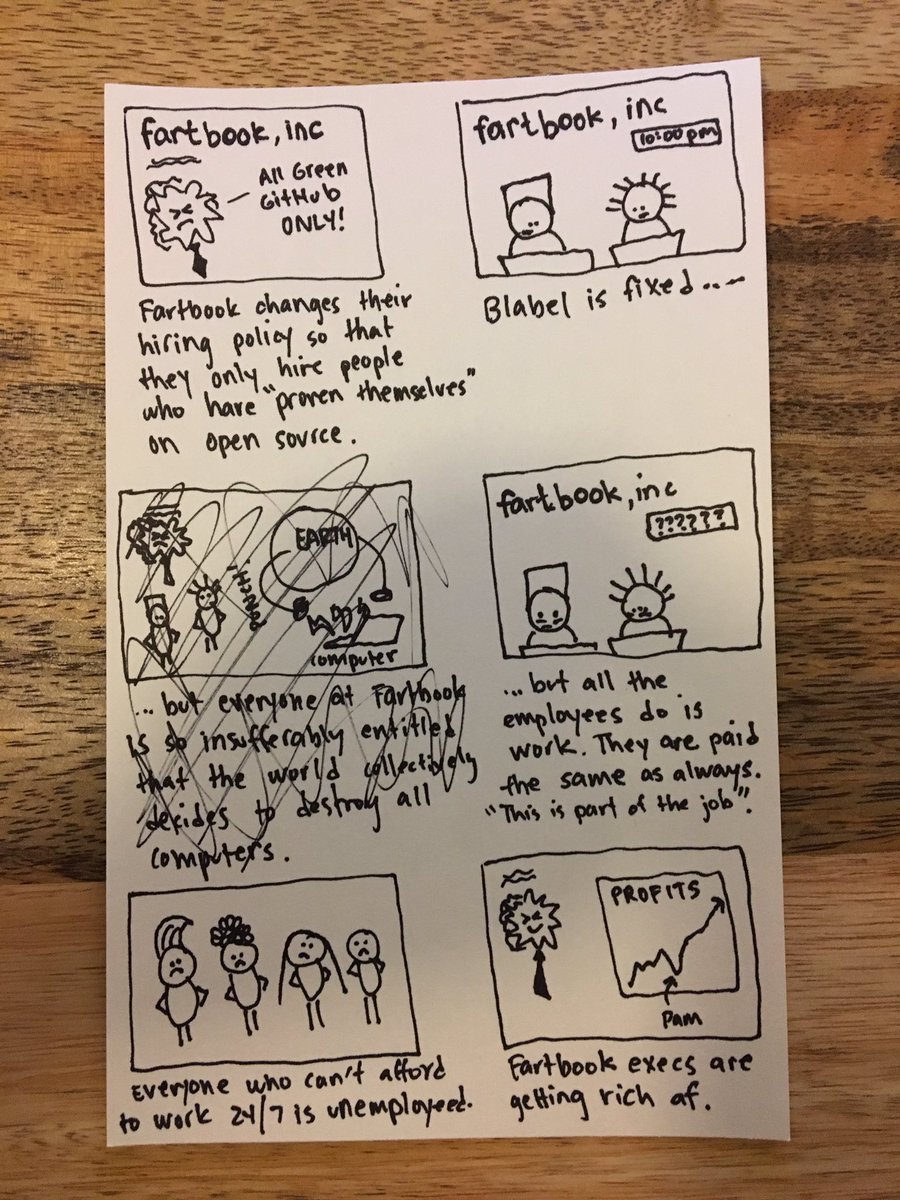 fartbook, inc
All Green
GitHub
ONLY!
Fartbook changes their
hiring policy so that
they only hire people
who have "proven themselves"
on open source.
fartbook, inc
10:00 pm
Blabel is fixed....
EARTH
PUNCH!
computer
...but everyone at Fartbook
is so insufferably entitled
that the world collectively
decides to destroy all
computers.
fartbook, inc
??????
...but all the
employees do is
work. They are paid
the same as always.
"This is part of the job".
Everyone who can't afford
to work 24/7 is unemployeed.
PROFITS
Pam
Fartbook execs are
getting rich af.